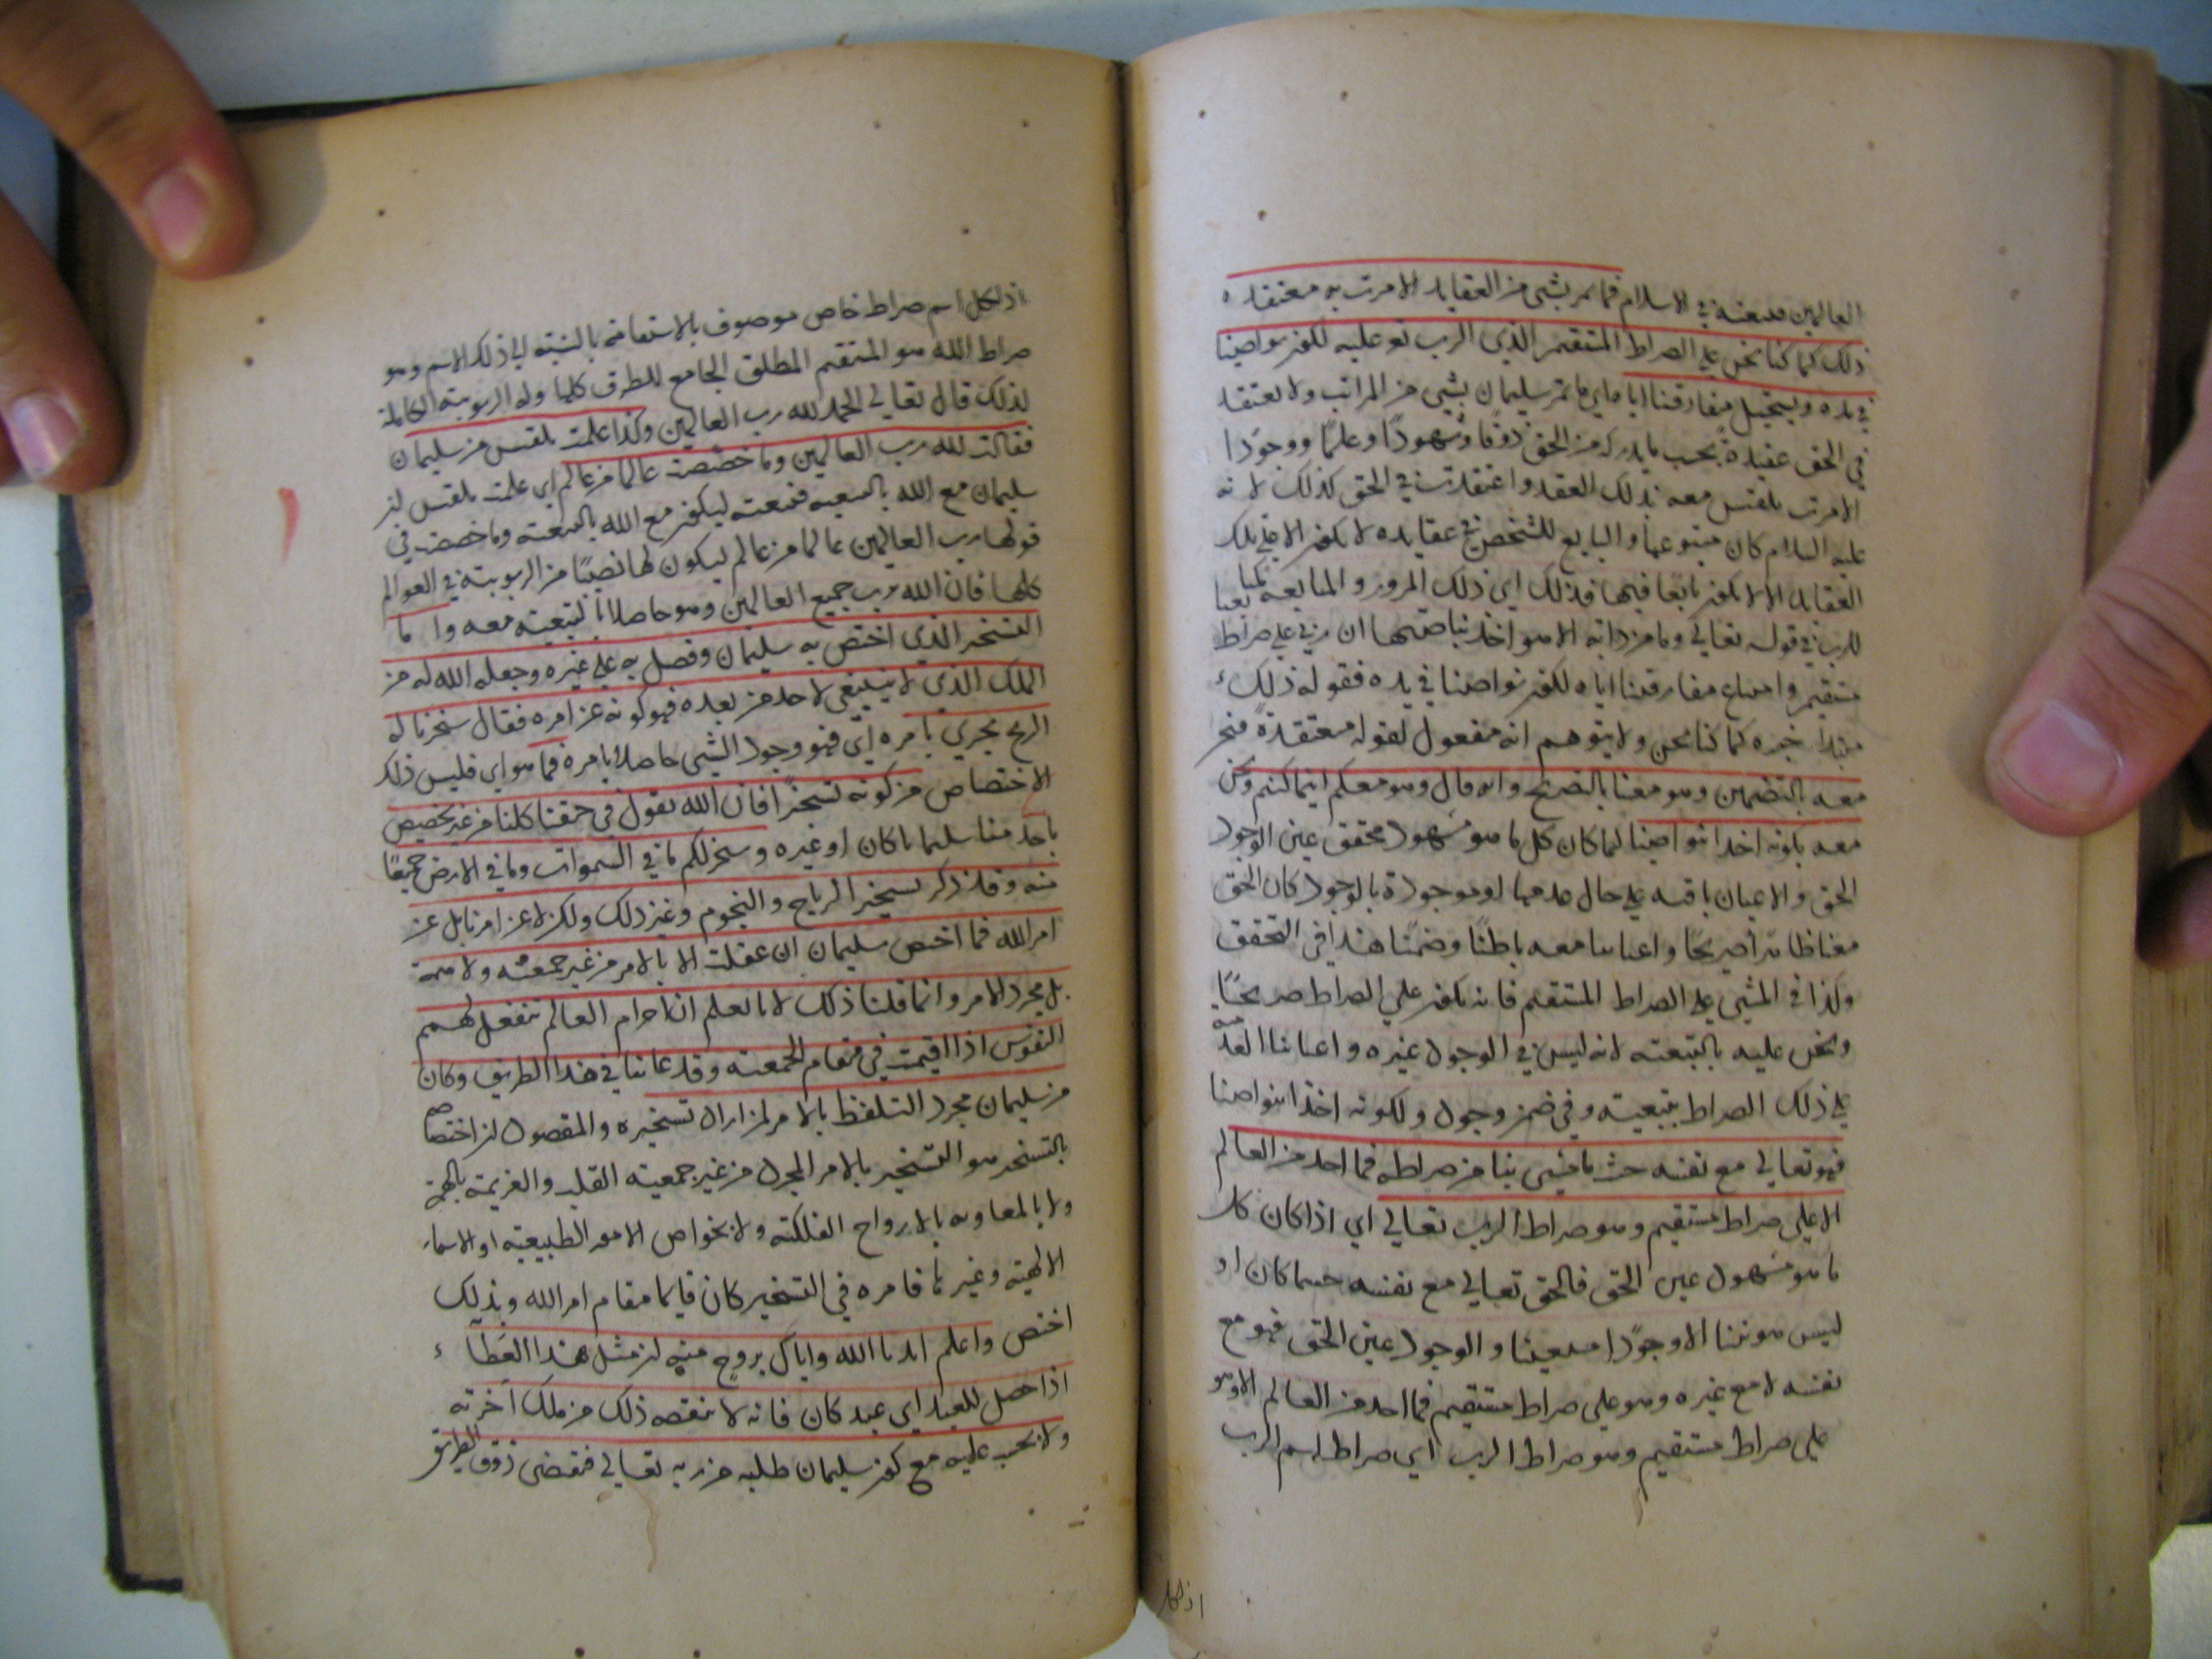 العالمين فتبعته في الاسلام فما يمر بشي من العقايد الا مرت به معتقدة
ذلك كما كنا نحن على الصراط المستقيم الذي الرب تع عليه لكون نواصينا
في يده ويستحيل مفارقتنا اياه اي ما يمر سليمان بشي من المراتب ولا يعتقد
في الحق عقيدة بحسب ما يدركه من الحق ذوقا وشهودًا وعلمًا ووجودًا
الا مرت بلقيس معه بذلك العقد واعتقدت في الحق كذلك لانه
عليه السلام كان متبوعها والتابع للشخص في عقايده لا يكون الا في تلك
العقايد والا لا يكون تابعا فيها فذلك اي ذلك المرور والمتابعة كما تبعنا
للرب في قوله تعالى وما من دابة الا هو اخذ بناصيتها ان ربي على صراط
مستقيم وامتناع مفارقتنا اياه لكون نواصينا في يده فقوله ذلك
مبتدا خبره كما كنا نحن ولا يتوهم انه مفعول لقوله معتقدة فنحن
معه بالتضمين وهو معنا بالتصريح وانه قال وهو معكم اينما كنتم ونحن
معه بكونه اخذا بنواصينا لما كان كل ما هو مشهود محقق عين الوجود
الحق والاعيان باقية على حال عدمها لو موجودة بالوجود كان الحق
معنا ظاهرا صريحًا واعياننا معه باطنًا وضمنًا هذا في التحقق
وكذا في المشي على الصراط المستقيم فانه يكون على الصراط صريحًا
ونحن عليه بالتبعية لانه ليس في الوجود غيره واعياننا العدمية
على ذلك الصراط بتبعيته وفي ضمن وجود ولكونه اخذا بنواصينا
فهو تعالى مع نفسه حيث ما مشى بنا من صراطه فما احد من العالم
الا على صراط مستقيم وهو صراط الرب تعالى اي اذا كان كل
ما هو مشهود عين الحق فالحق تعالى مع نفسه حيثما كان اذ
ليس هويتنا الا وجودًا متعينا والوجود عين الحق فهو مع
نفسه لا مع غيره وهو على صراط مستقيم فما احد من العالم الا وهو
على صراط مستقيم وهو صراط الرب اي صراط اسم الرب
اذ لكل
اذ لكل اسم صراط خاص موصوف بالاستقامة بالنسبة الى ذلك الاسم وهو
صراط الله هو المستقيم المطلق الجامع للطرق كلها وله الربوبية الكاملة
لذلك قال تعالى الحمد لله رب العالمين وكذا علمت بلقيس من سليمان
فقالت لله رب العالمين وما خصصت عالما من عالم اي علمت بلقيس ان
سليمان مع الله بالتبعية فتبعته ليكون مع الله بالتبعية وما خصصت في
قولها رب العالمين عالما من عالم ليكون لها نصيبًا من الربوبية في العوالم
كلها فان الله رب جميع العالمين وهو حاصلا بالتبعية معه واما
التسخير الذي اختص به سليمان وفضل به على غيره وجعله الله له من
الملك الذي لا ينبغي لاحد من بعده فهو كونه عن امره فقال سخرنا له
الريح تجري بامره اي فهو وجود الشي حاصلا بامره فما هو اي فليس ذلك
الاختصاص من كونه تسخيرًا فان الله يقول في حقنا كلنا من غير تخصيص
باحد منا سليمانا كان او غيره وسخر لكم ما في السموات وما في الارض جميعًا
منه وقد ذكر تسخير الرياح والنجوم وغير ذلك ولكن لا عن امرنا بل عن
امر الله فما اختص سليمان ان عقلت الا بالامر من غير جمعية ولا همة
بل مجرد الامر وانما قلنا ذلك لانا نعلم ان اجرام العالم تنفعل لهمم
النفوس اذا اقيمت في مقام الجمعية وقد عاينا في هذا الطريق وكان
من سليمان مجرد التلفظ بالامر لمن اراد تسخيره والمقصود ان اختصاصه
بالتسخير هو التسخير بالامر المجرد من غير جمعية القلب والعزيمة بالهمة
ولا بالمعاونة بالارواح الفلكية ولا بخواص الامور الطبيعية او الاسماء
الالهية وغيرها فامره في التسخير كان قايما مقام امر الله وبذلك
اختص واعلم ايدنا الله واياك بروح منه ان مثل هذا العَطآء
اذا حصل للعبد اي عبد كان فانه لا ينقصه ذلك من ملك اخرته
ولا يحسب عليه مع كون سليمان طلبه من ربه تعالى فيقتضي ذوق الطريق